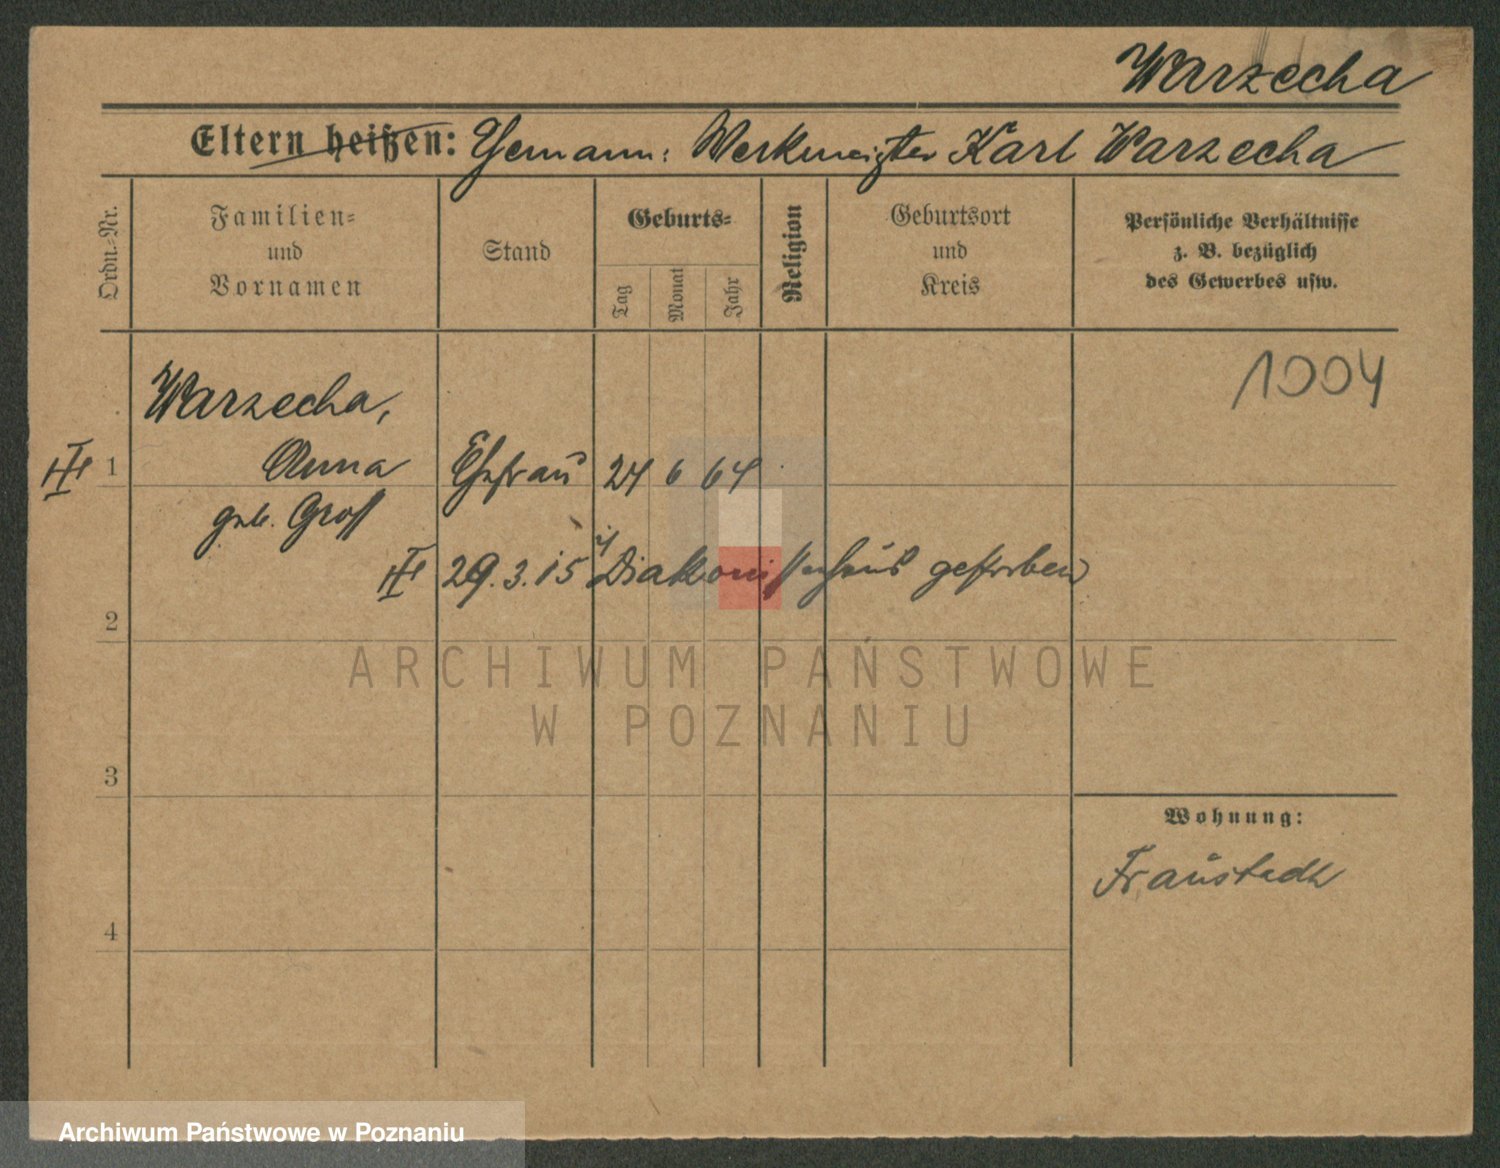 Warzecha
Eltern heißen: Ehemann: Werkmeister Karl Warzecha
Ordn.-Nr.
Familien-
und
Vornamen
Stand
Geburts-
Tag
Monat
Jahr
Religion
Geburtsort
und
Kreis
Persönliche Verhältnisse
z. B. bezüglich
des Gewerbes usw.
1004
Warzecha,
1 Anna Ehefrau 24 6 64
geb. Gross
29.3.15 i/ Diakonissenhaus gestorben
2
ARCHIWUM PAŃSTWOWE
W POZNANIU
3
Wohnung:
Fraustadt
4
Archiwum Państwowe w Poznaniu